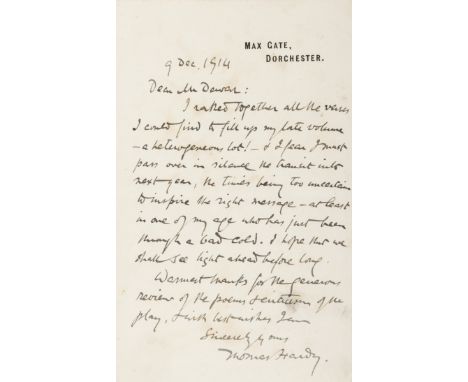 MAX GATE,
DORCHESTER.
9 Dec. 1914
Dear Mr Dewar:
I raked together all the verses
I could find to fill up my late volume
– a heterogeneous lot! – & I fear I must
pass over in silence the transit into
next year, the times being too uncertain
to inspire the right message – at least
in one of my age who has just been
through a bad cold. I hope that we
shall see light ahead before long.
Warmest thanks for the generous
review of the poems & of the
play. & with best wishes I am
Sincerely yours
Thomas Hardy.